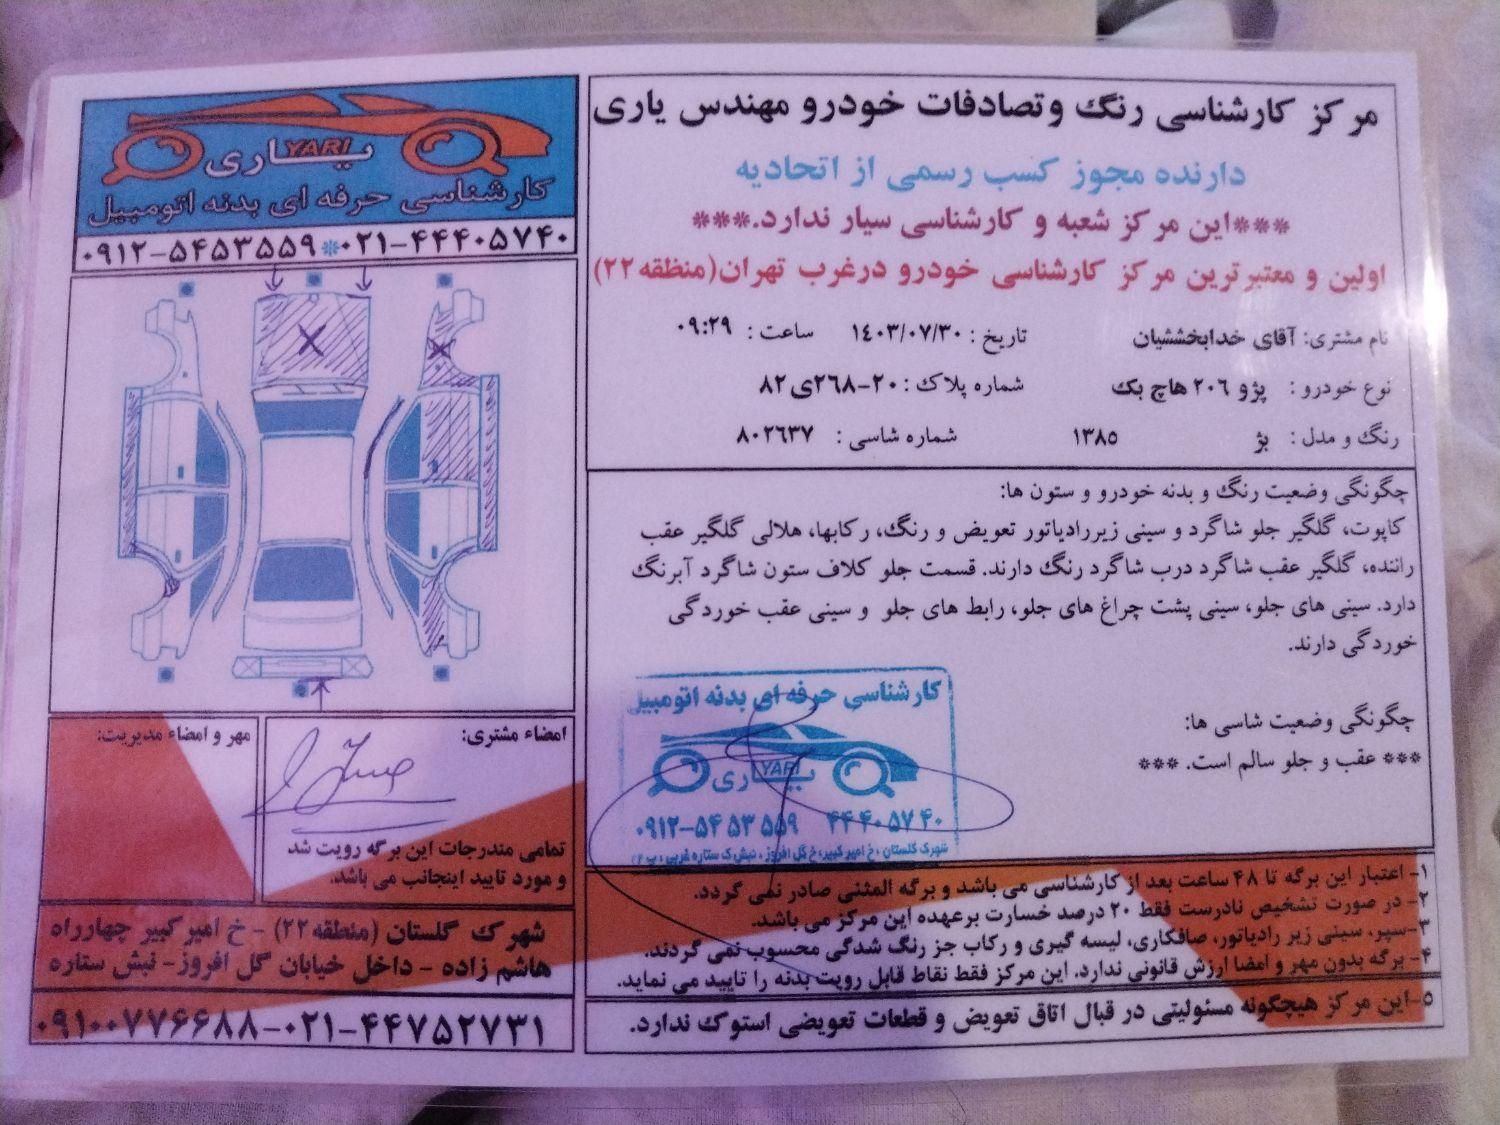 یاری YARI
کارشناسی حرفه ای بدنه اتومبیل
۰۹۱۲-۵۴۵۳۵۵۹*۰۲۱-۴۴۴۰۵۷۴۰
مرکز کارشناسی رنگ وتصادفات خودرو مهندس یاری
دارنده مجوز کسب رسمی از اتحادیه
***این مرکز شعبه و کارشناسی سیار ندارد.***
اولین و معتبرترین مرکز کارشناسی خودرو درغرب تهران(منطقه۲۲)
نام مشتری: آقای خدابخششیان تاریخ : ۱۴۰۳/۰۷/۳۰ ساعت : ۰۹:۲۹
نوع خودرو : پژو ۲۰۶ هاچ بک شماره پلاک : ۲۰-۲۶۸ی۸۲
رنگ و مدل : بژ ۱۳۸۵ شماره شاسی : ۸۰۲۶۳۷
چگونگی وضعیت رنگ و بدنه خودرو و ستون ها:
کاپوت، گلگیر جلو شاگرد و سینی زیررادیاتور تعویض و رنگ، رکابها، هلالی گلگیر عقب
راننده، گلگیر عقب شاگرد درب شاگرد رنگ دارند. قسمت جلو کلاف ستون شاگرد آبرنگ
دارد. سینی های جلو، سینی پشت چراغ های جلو، رابط های جلو و سینی عقب خوردگی
خوردگی دارند.
چگونگی وضعیت شاسی ها:
*** عقب و جلو سالم است. ***
کارشناسی حرفه ای بدنه اتومبیل
یاری YARI
۰۹۱۲-۵۴۵۳۵۵۹ ۴۴۴۰۵۷۴۰
شهرک گلستان ، خ امیر کبیر، خ گل افروز ، نبش ک ستاره غربی ، پ
امضاء مشتری:
مهر و امضاء مدیریت:
تمامی مندرجات این برگه رویت شد
و مورد تایید اینجانب می باشد.
شهرک گلستان (منطقه۲۲) - خ امیر کبیر چهارراه
هاشم زاده - داخل خیابان گل افروز- نبش ستاره
۰۹۱۰۰۷۷۶۶۸۸-۰۲۱-۴۴۷۵۲۷۳۱
۱- اعتبار این برگه تا ۴۸ ساعت بعد از کارشناسی می باشد و برگه المثنی صادر نمی گردد.
۲- در صورت تشخیص نادرست فقط ۲۰ درصد خسارت برعهده این مرکز می باشد.
۳-سپر، سینی زیر رادیاتور، صافکاری، لیسه گیری و رکاب جز رنگ شدگی محسوب نمی گردند.
۴- برگه بدون مهر و امضا ارزش قانونی ندارد. این مرکز فقط نقاط قابل رویت بدنه را تایید می نماید.
۵-این مرکز هیچگونه مسئولیتی در قبال اتاق تعویض و قطعات تعویضی استوک ندارد.